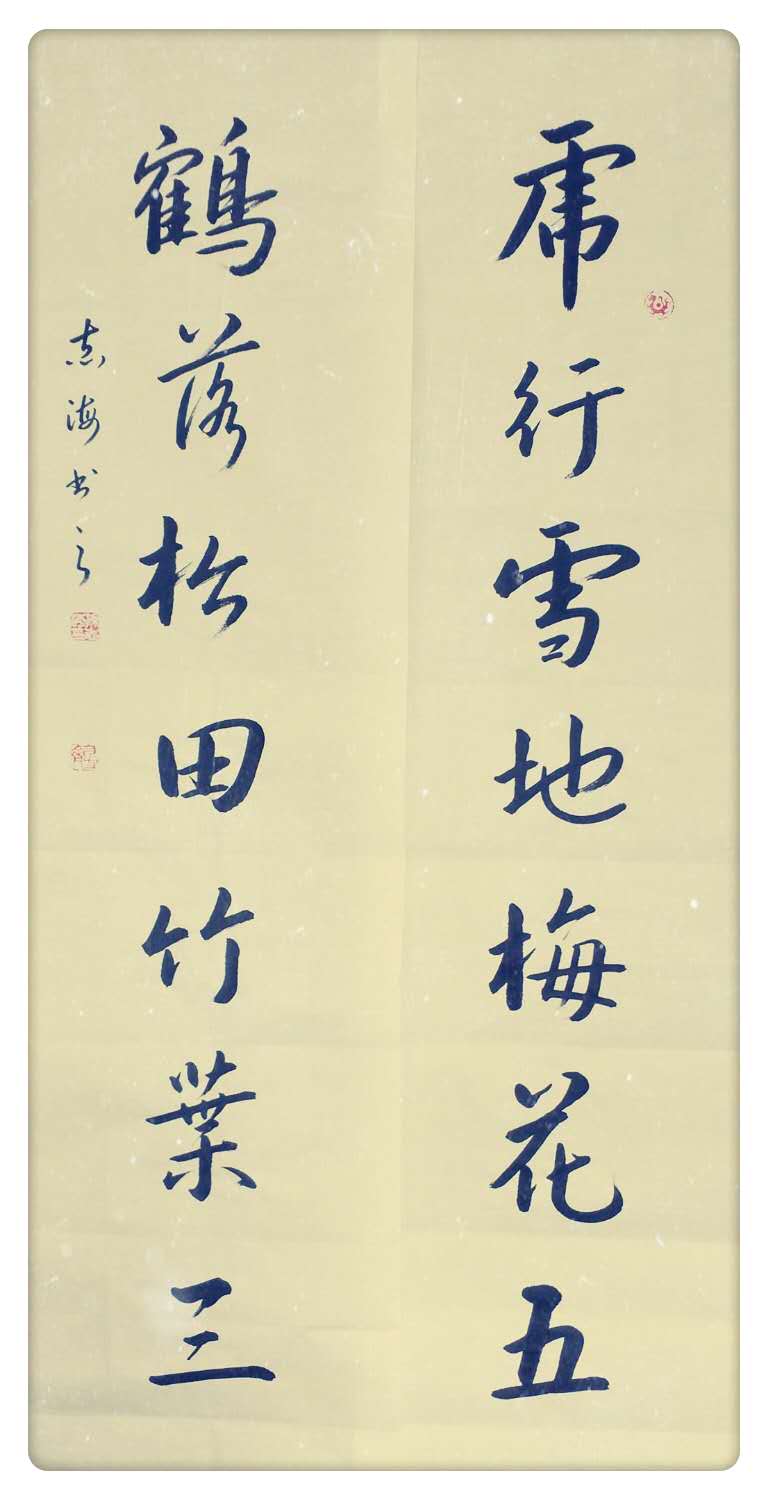 虎行雪地梅花五
鶴落松田竹葉三
志海书之